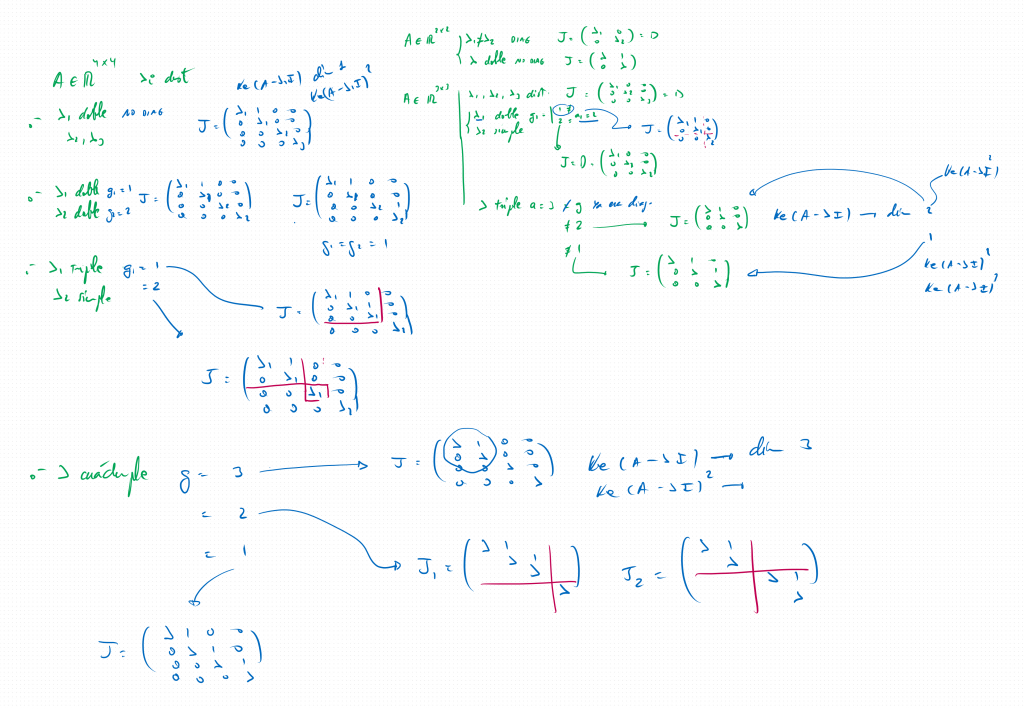 A ∈ ℝ^{4×4} λi dist
Ker(A-λ₁I) dim 1
Ker(A-λ₁I)²
·- λ₁ doble NO DIAG
λ₂, λ₃
J = (λ₁ 1 0 0
0 λ₁ 0 0
0 0 λ₂ 0
0 0 0 λ₃)
·- λ₁ doble g₁ = 1
λ₂ doble g₂ = 2
J = (λ₁ 1 0 0
0 λ₁ 0 0
0 0 λ₂ 0
0 0 0 λ₂)
J = (λ₁ 1 0 0
0 λ₁ 0 0
0 0 λ₂ 1
0 0 0 λ₂)
g₁ = g₂ = 1
·- λ₁ triple g₁ = 1
= 2
λ₂ simple
J = (λ₁ 1 0 0
0 λ₁ 1 0
0 0 λ₁ 0
0 0 0 λ₂)
J = (λ₁ 1 0 0
0 λ₁ 0 0
0 0 λ₁ 0
0 0 0 λ₂)
A ∈ ℝ^{2×2}
λ₁ ≠ λ₂ DIAG J = (λ₁ 0
0 λ₂) = D
λ doble NO DIAG J = (λ 1
0 λ)
A ∈ ℝ^{3×3}
λ₁, λ₂, λ₃ dist. J = (λ₁ 0 0
0 λ₂ 0
0 0 λ₃) = D
λ₁ doble g₁ = 1 ≠
2 = a₁ = 2
λ₂ simple
J = (λ₁ 1 0
0 λ₁ 0
0 0 λ₂)
J = D = (λ₁ 0 0
0 λ₁ 0
0 0 λ₂)
λ triple a = 3 ≠ g diag.
≠ 2
J = (λ 1 0
0 λ 0
0 0 λ)
≠ 1
J = (λ 1 0
0 λ 1
0 0 λ)
Ker(A-λI) → dim 2
1
Ker(A-λI)²
Ker(A-λI)²
Ker(A-λI)³
·- λ cuádruple g = 3
= 2
= 1
J = (λ 1 0 0
0 λ 0 0
0 0 λ 0
0 0 0 λ)
Ker(A-λI) → dim 3
Ker(A-λI)² →
J₁ = (λ 1
λ 1
λ
λ)
J₂ = (λ 1
λ
λ 1
λ)
J = (λ 1 0 0
0 λ 1 0
0 0 λ 1
0 0 0 λ)